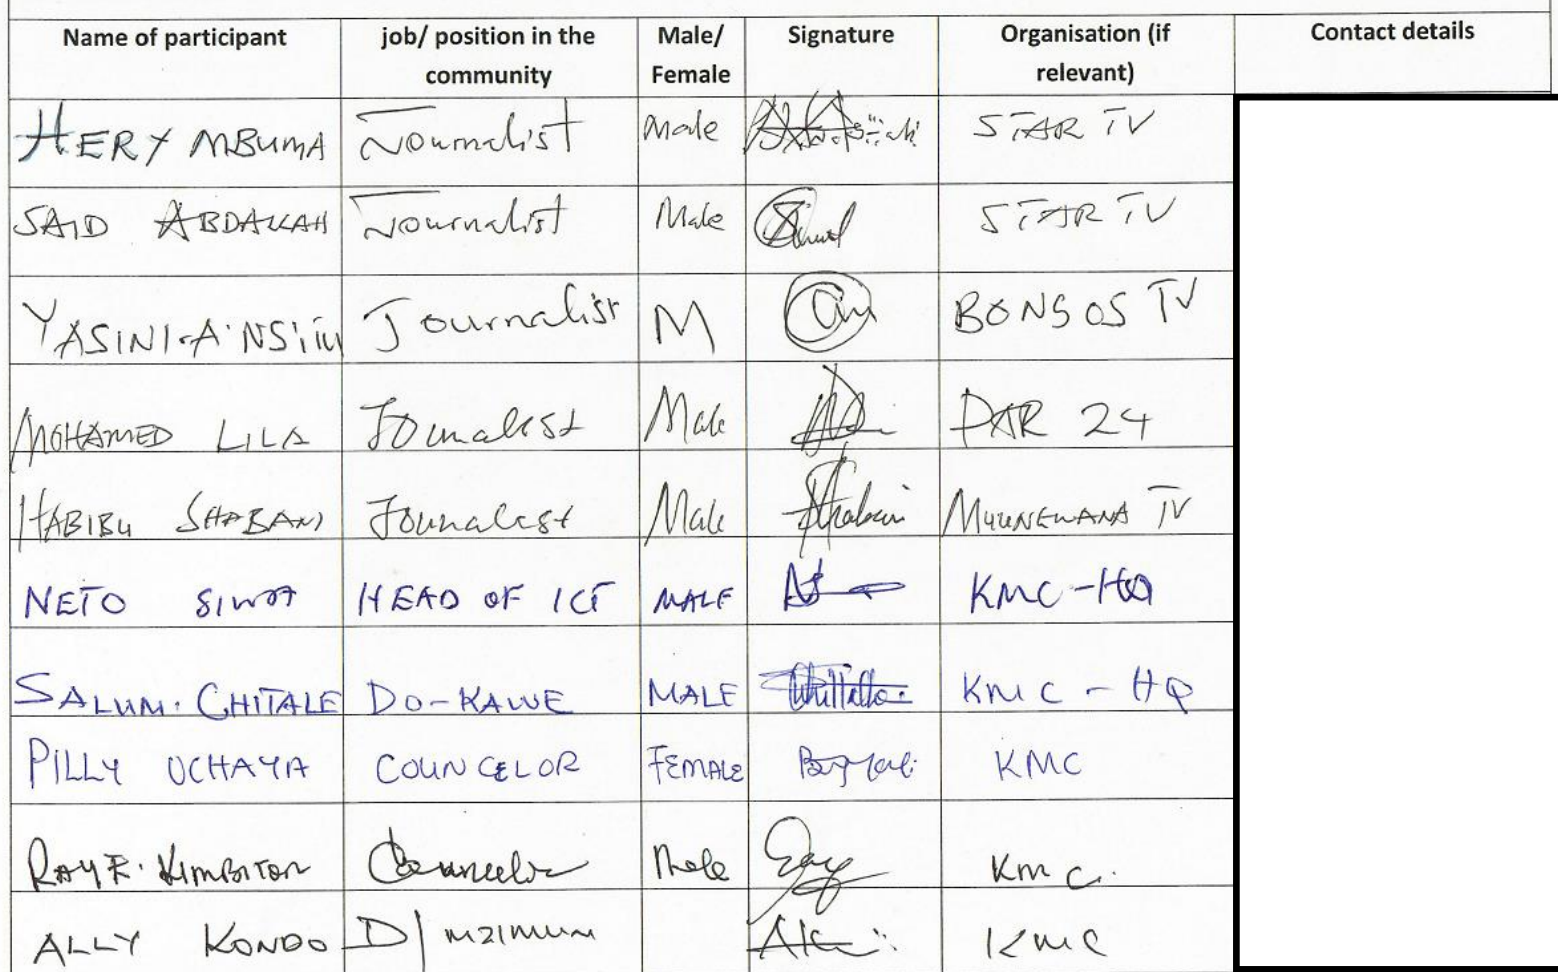 Name of participant job/ position in the community Male/ Female Signature Organisation (if relevant) Contact details
HERY MBUMA Journalist Male STAR TV
SAID ABDALLAH Journalist Male STAR TV
YASINI Journalist M BONGOS TV
MOHAMED LILA Journalist Male DAR 24
HABIBU SHABANI Journalist Male TV
NETO HEAD OF ICT MALE KMC-HQ
SALUM. CHITALE DO-KAWE MALE KMC - HQ
PILLY UCHAYA COUNCELOR FEMALE KMC
Male KMC.
ALLY KONDO D/ MZIMUNI KMC